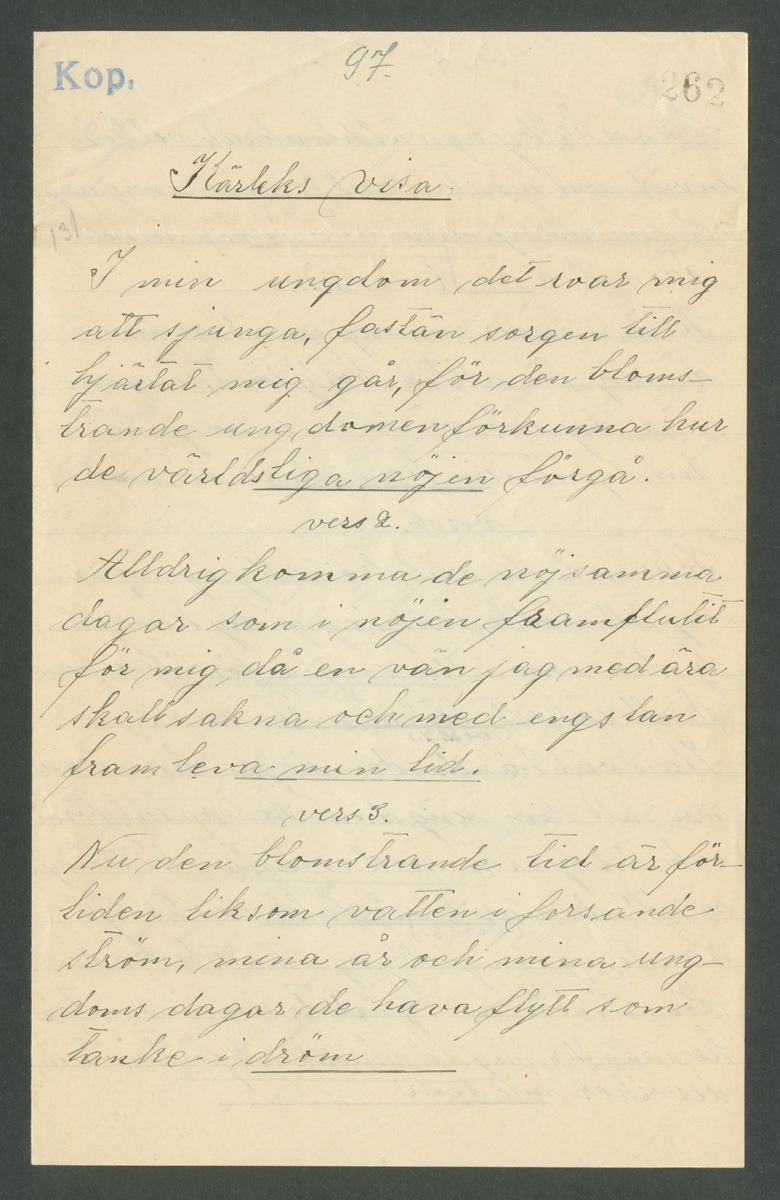 Kop.
97.
262
Kärleks visa.
131
I min ungdom det roar mig
att sjunga, fastän sorgen till
hjärtat mig går, för den bloms-
trande ungdomen förkunna hur
de världsliga nöjen förgå.
vers 2.
Alldrig komma de nöjsamma
dagar som i nöjen framflutit
för mig, då en vän jag med ära
skall sakna och med engslan
framleva min tid.
vers 3.
Nu den blomstrande tid är för-
liden liksom vatten i forsande
ström, mina år och mina ung-
doms dagar de hava flytt som
tanke i dröm